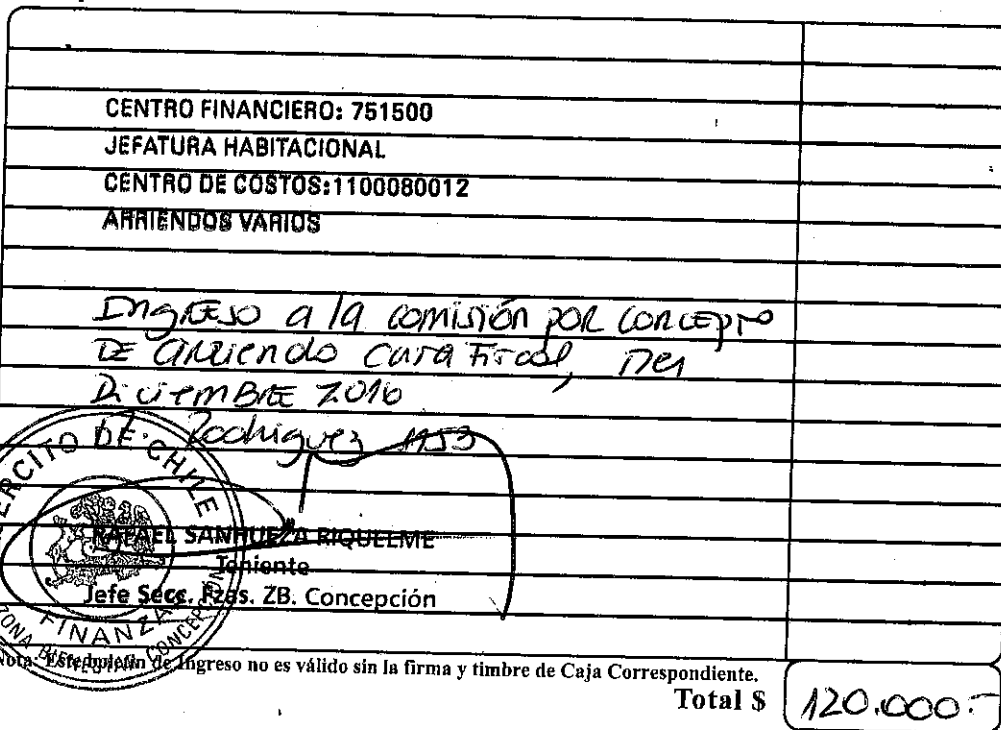 CENTRO FINANCIERO: 751500
JEFATURA HABITACIONAL
CENTRO DE COSTOS:1100080012
ARRIENDOS VARIOS
Ingreso a la comisión por concepto
de arriendo casa Fiscal, mes
Diciembre 2016
Rodriguez 1153
EJERCITO DE CHILE
RAFAEL SANHUEZA RIQUELME
Teniente
Jefe Secc. Fzas. ZB. Concepción
FINANZAS
ZONA BIENESTAR CONCEPCIÓN
Nota: Este boletín de Ingreso no es válido sin la firma y timbre de Caja Correspondiente.
Total $ 120.000.-